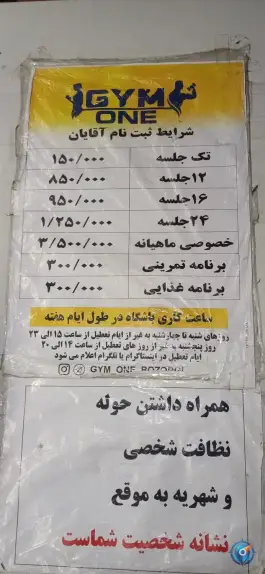 GYM
ONE
شرایط ثبت نام آقایان
تک جلسه ۱۵۰/۰۰۰
۱۲جلسه ۸۵۰/۰۰۰
۱۶جلسه ۹۵۰/۰۰۰
۲۴جلسه ۱/۲۵۰/۰۰۰
خصوصی ماهیانه ۳/۵۰۰/۰۰۰
برنامه تمرینی ۳۰۰/۰۰۰
برنامه غذایی ۳۰۰/۰۰۰
ساعت کاری باشگاه در طول ایام هفته
روزهای شنبه تا چهارشنبه به غیر از ایام تعطیل از ساعت ۱۵ الی ۲۳
روز پنجشنبه به غیر از روز های تعطیل از ساعت ۱۴ الی ۲۰
ایام تعطیل در اینستاگرام یا تلگرام اعلام می شود
GYM_ONE
همراه داشتن حوله
نظافت شخصی
و شهریه به موقع
نشانه شخصیت شماست